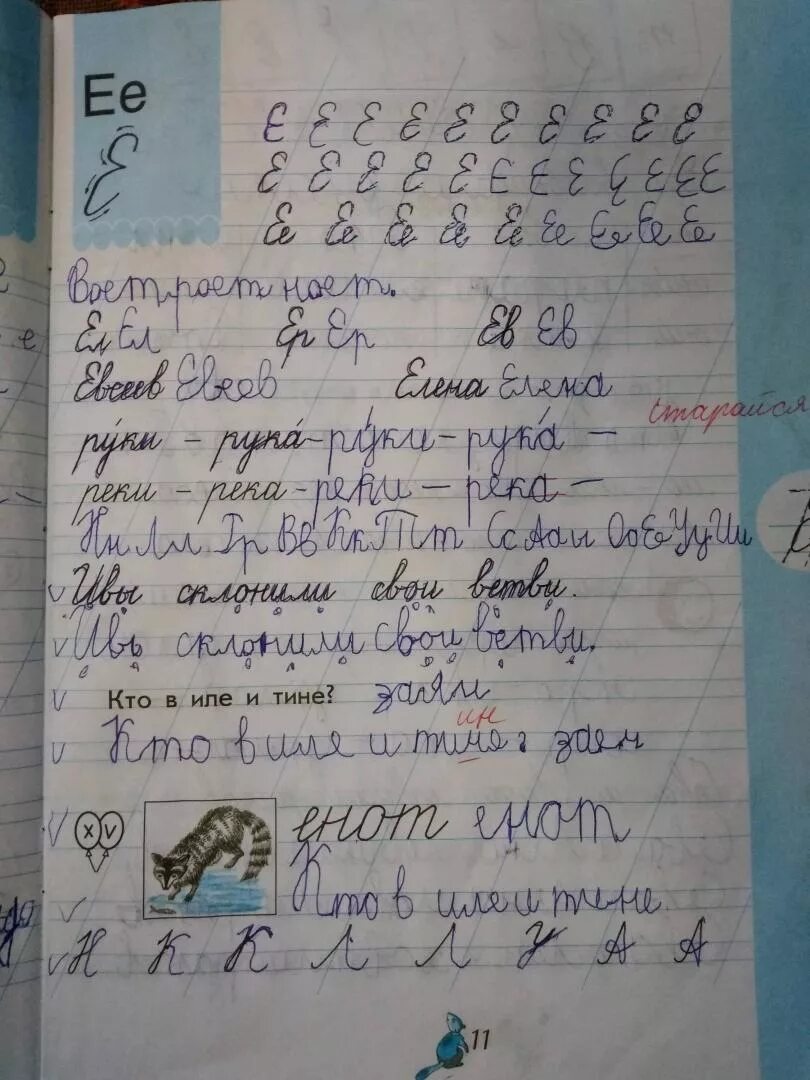 Ее
Е
Е Е Е Е Е Е Е Е Е Е
Е Е Е Е Е Е Е Е Е Е Е
Ее Ее Ее Ее Ее Ее Ее Ее Ее
Ел Ел Ер Ер Ев Ев
Евсеев Евсеев Елена Елена
старайся
ру́ки – рука́ – ру́ки – рука́ –
реки – река – реки – река –
Нн Лл Гр Вв Кк Тт Сс Аа ы Оо Ее Уу Ии
Ивы склонили свои ветви.
Ивы склонили свои ветви.
Кто в иле и тине?
ин
Кто в иле и тине
х v
енот енот
Кто в иле и тине
Н К К Л Л У А А
11